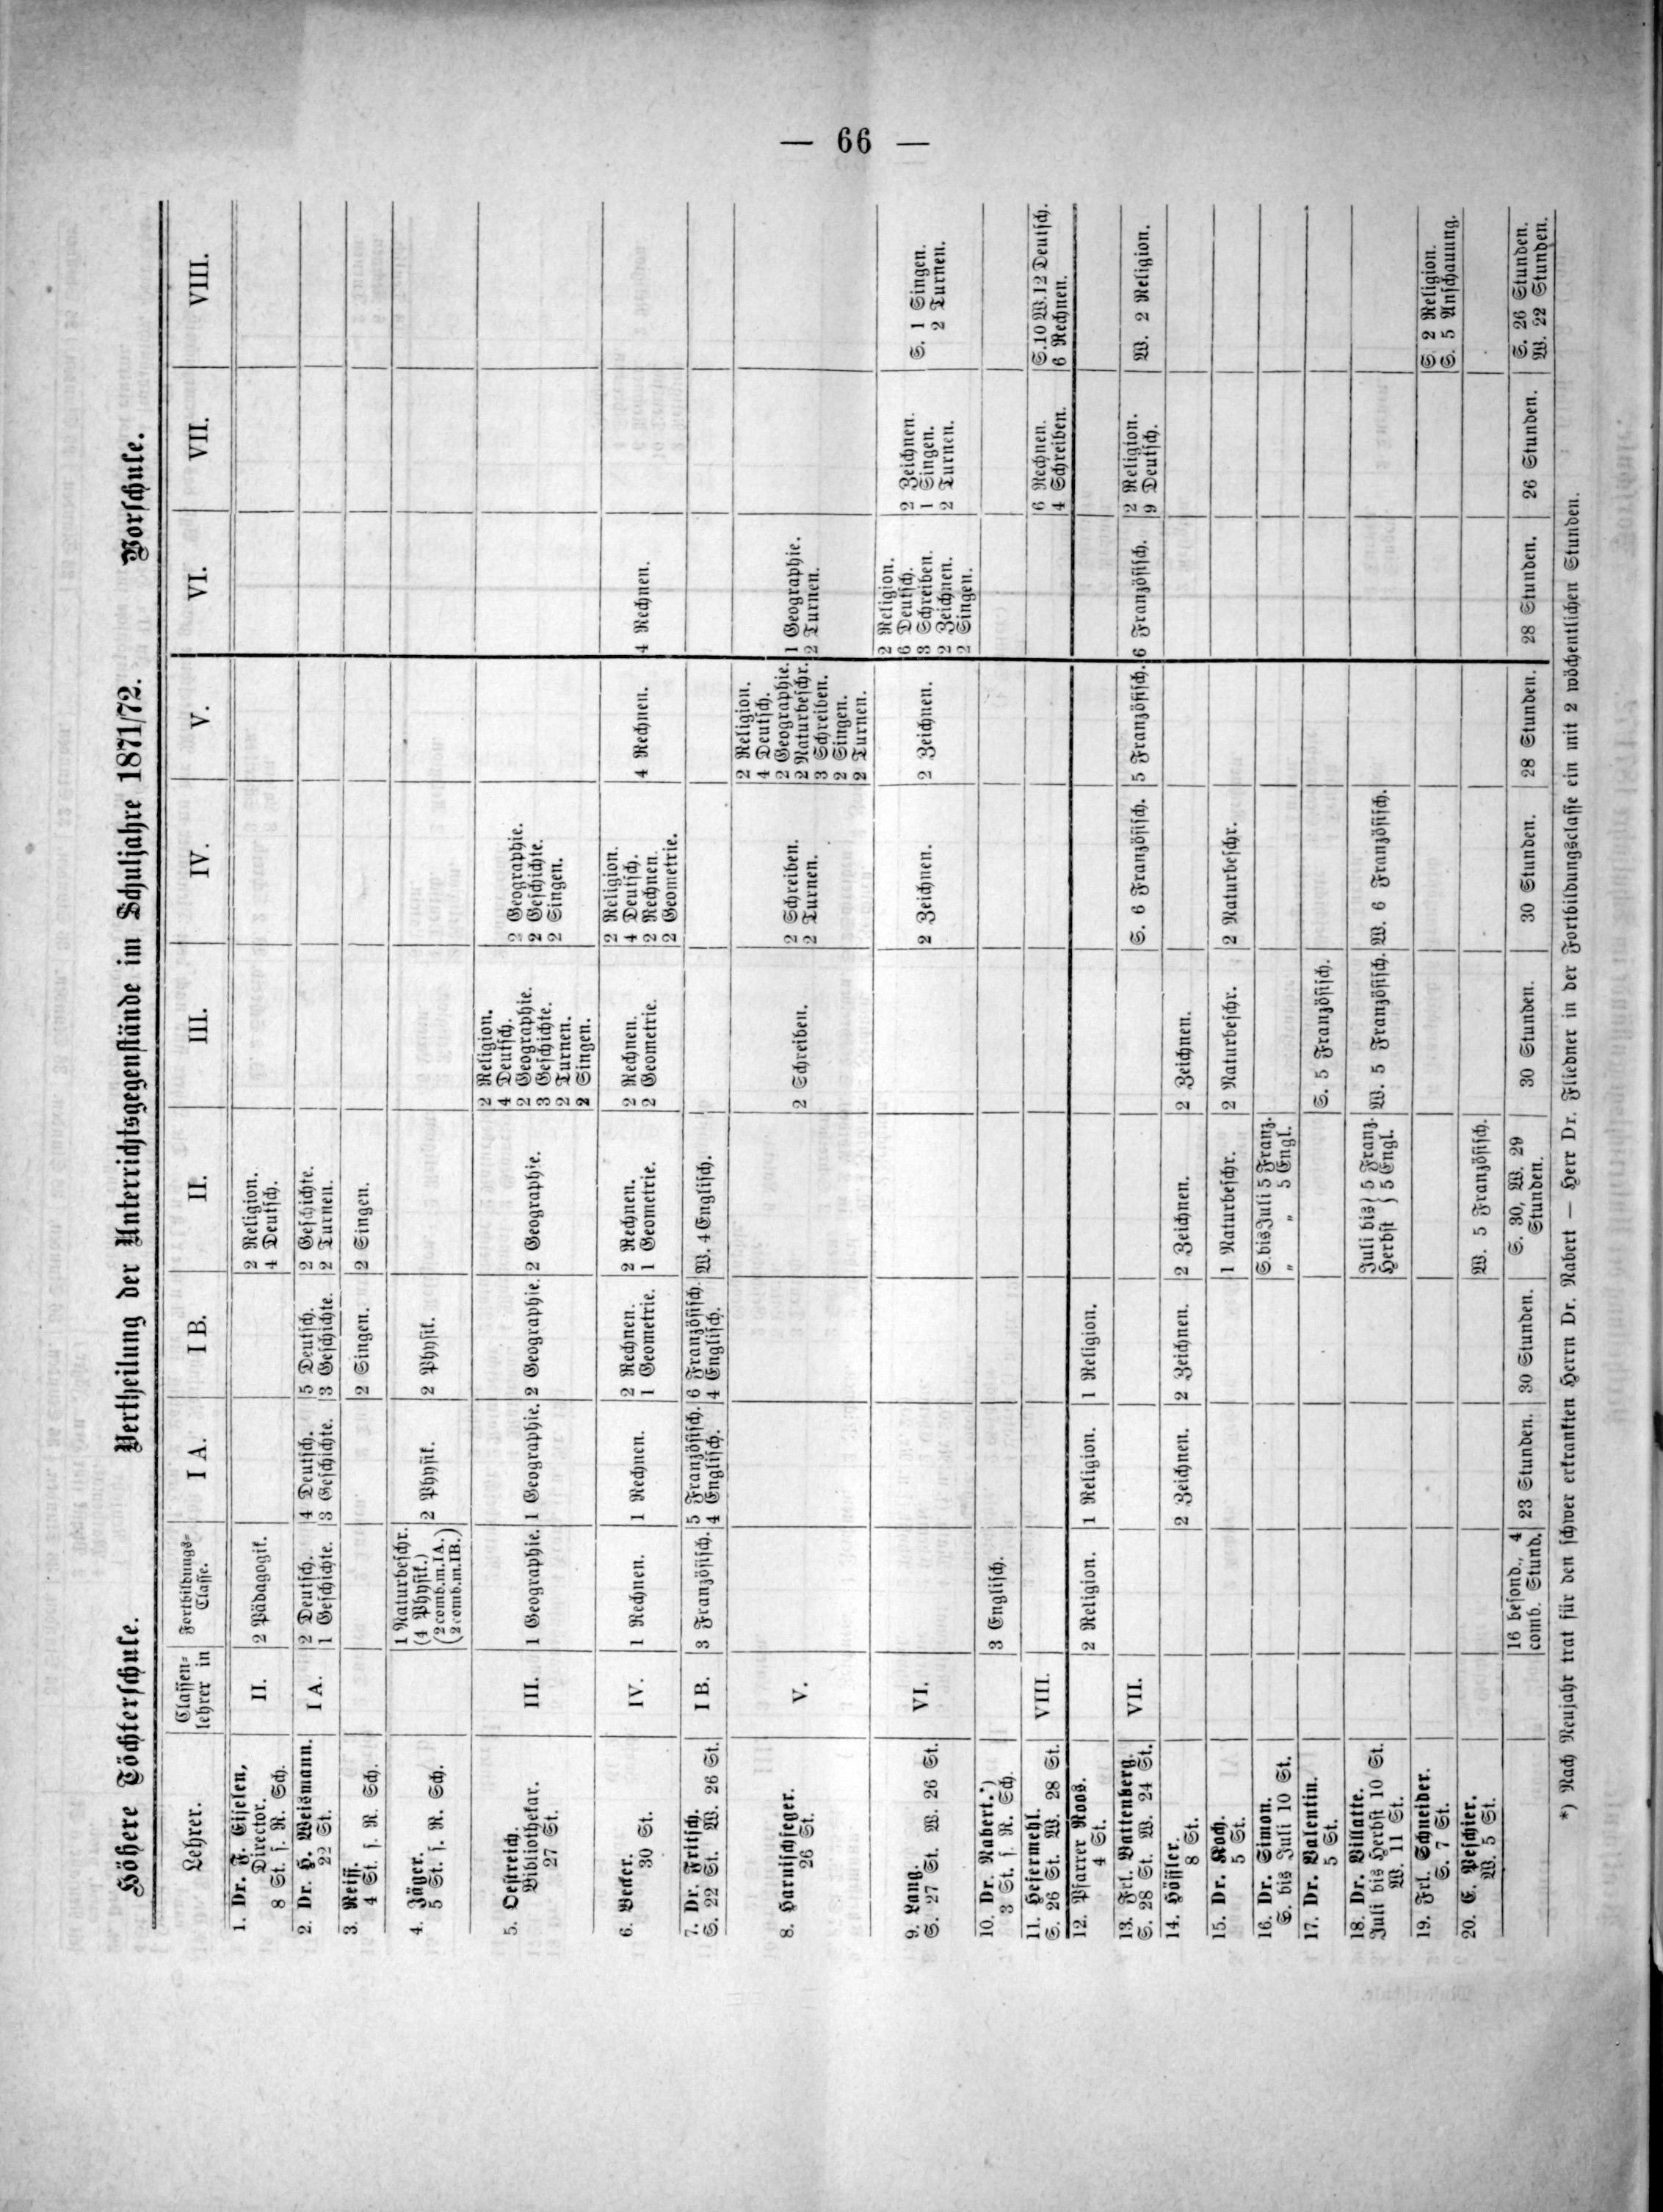 — 66 —
Höhere Töchterschule. Vertheilung der Unterrichtsgegenstände im Schuljahre 1871/72. Vorschule.
Lehrer. | Classen-lehrer in | Fortbildungs-Classe. | I A. | I B. | II. | III. | IV. | V. | VI. | VII. | VIII.
1. Dr. F. Eiselen,
Director.
8 St. s. R. Sch. | II. | 2 Pädagogik. | 2 Religion.
4 Deutsch.
2. Dr. H. Weismann.
22 St. | I A. | 2 Deutsch.
1 Geschichte. | 4 Deutsch.
3 Geschichte. | 5 Deutsch.
3 Geschichte. | 2 Geschichte.
2 Turnen.
3. Reiff.
4 St. s. R. Sch. | 2 Singen. | 2 Singen.
4. Jäger.
5 St. s. R. Sch. | 1 Naturbeschr.
(4 Physik.)
(2 comb. m. IA.)
(2 comb. m. IB.) | 2 Physik. | 2 Physik.
5. Oestreich.
Bibliothekar.
27 St. | III. | 1 Geographie. | 1 Geographie. | 2 Geographie. | 2 Geographie. | 2 Religion.
4 Deutsch.
2 Geographie.
3 Geschichte.
2 Turnen.
2 Singen. | 2 Geographie.
2 Geschichte.
2 Singen.
6. Becker.
30 St. | IV. | 1 Rechnen. | 1 Rechnen. | 2 Rechnen.
1 Geometrie. | 2 Rechnen.
1 Geometrie. | 2 Rechnen.
2 Geometrie. | 2 Religion.
4 Deutsch.
2 Rechnen.
2 Geometrie. | 4 Rechnen. | 4 Rechnen.
7. Dr. Fritsch.
S. 22 St. W. 26 St. | I B. | 3 Französisch. | 5 Französisch.
4 Englisch. | 6 Französisch.
4 Englisch. | W. 4 Englisch.
8. Harnischfeger.
26 St. | V. | 2 Schreiben. | 2 Schreiben.
2 Turnen. | 2 Religion.
4 Deutsch.
2 Geographie.
2 Naturbeschr.
3 Schreiben.
2 Singen.
2 Turnen. | 1 Geographie.
2 Turnen.
9. Lang.
S. 27 St. W. 26 St. | VI. | 2 Zeichnen. | 2 Zeichnen. | 2 Religion.
6 Deutsch.
3 Schreiben.
2 Zeichnen.
2 Singen. | 2 Zeichnen.
1 Singen.
2 Turnen. | S. 1 Singen.
2 Turnen.
10. Dr. Nabert.*)
3 St. s. R. Sch. | 3 Englisch.
11. Hesermehl.
S. 26 St. W. 28 St. | VIII. | 6 Rechnen.
4 Schreiben. | S. 10 W. 12 Deutsch.
6 Rechnen.
12. Pfarrer Roos.
4 St. | 2 Religion. | 1 Religion. | 1 Religion.
13. Frl. Battenberg.
S. 28 St. W. 24 St. | VII. | S. 6 Französisch. | 5 Französisch. | 6 Französisch. | 2 Religion.
9 Deutsch. | W. 2 Religion.
14. Höffler.
8 St. | 2 Zeichnen. | 2 Zeichnen. | 2 Zeichnen. | 2 Zeichnen.
15. Dr. Koch.
5 St. | 1 Naturbeschr. | 2 Naturbeschr. | 2 Naturbeschr.
16. Dr. Simon.
S. bis Juli 10 St. | S. bis Juli 5 Franz.
„ „ 5 Engl.
17. Dr. Valentin.
5 St. | S. 5 Französisch.
18. Dr. Villatte.
Juli bis Herbst 10 St.
W. 11 St. | Juli bis } 5 Franz.
Herbst } 5 Engl. | W. 5 Französisch. | W. 6 Französisch.
19. Frl. Schneider.
S. 7 St. | S 2 Religion.
S. 5 Anschauung.
20. E. Peschier.
W. 5 St. | W. 5 Französisch.
16 besond., 4
comb. Stund. | 23 Stunden. | 30 Stunden. | S. 30, W. 29
Stunden. | 30 Stunden. | 30 Stunden. | 28 Stunden. | 28 Stunden. | 26 Stunden. | S. 26 Stunden.
W. 22 Stunden.
*) Nach Neujahr trat für den schwer erkrankten Herrn Dr. Nabert — Herr Dr. Fliedner in der Fortbildungsclasse ein mit 2 wöchentlichen Stunden.